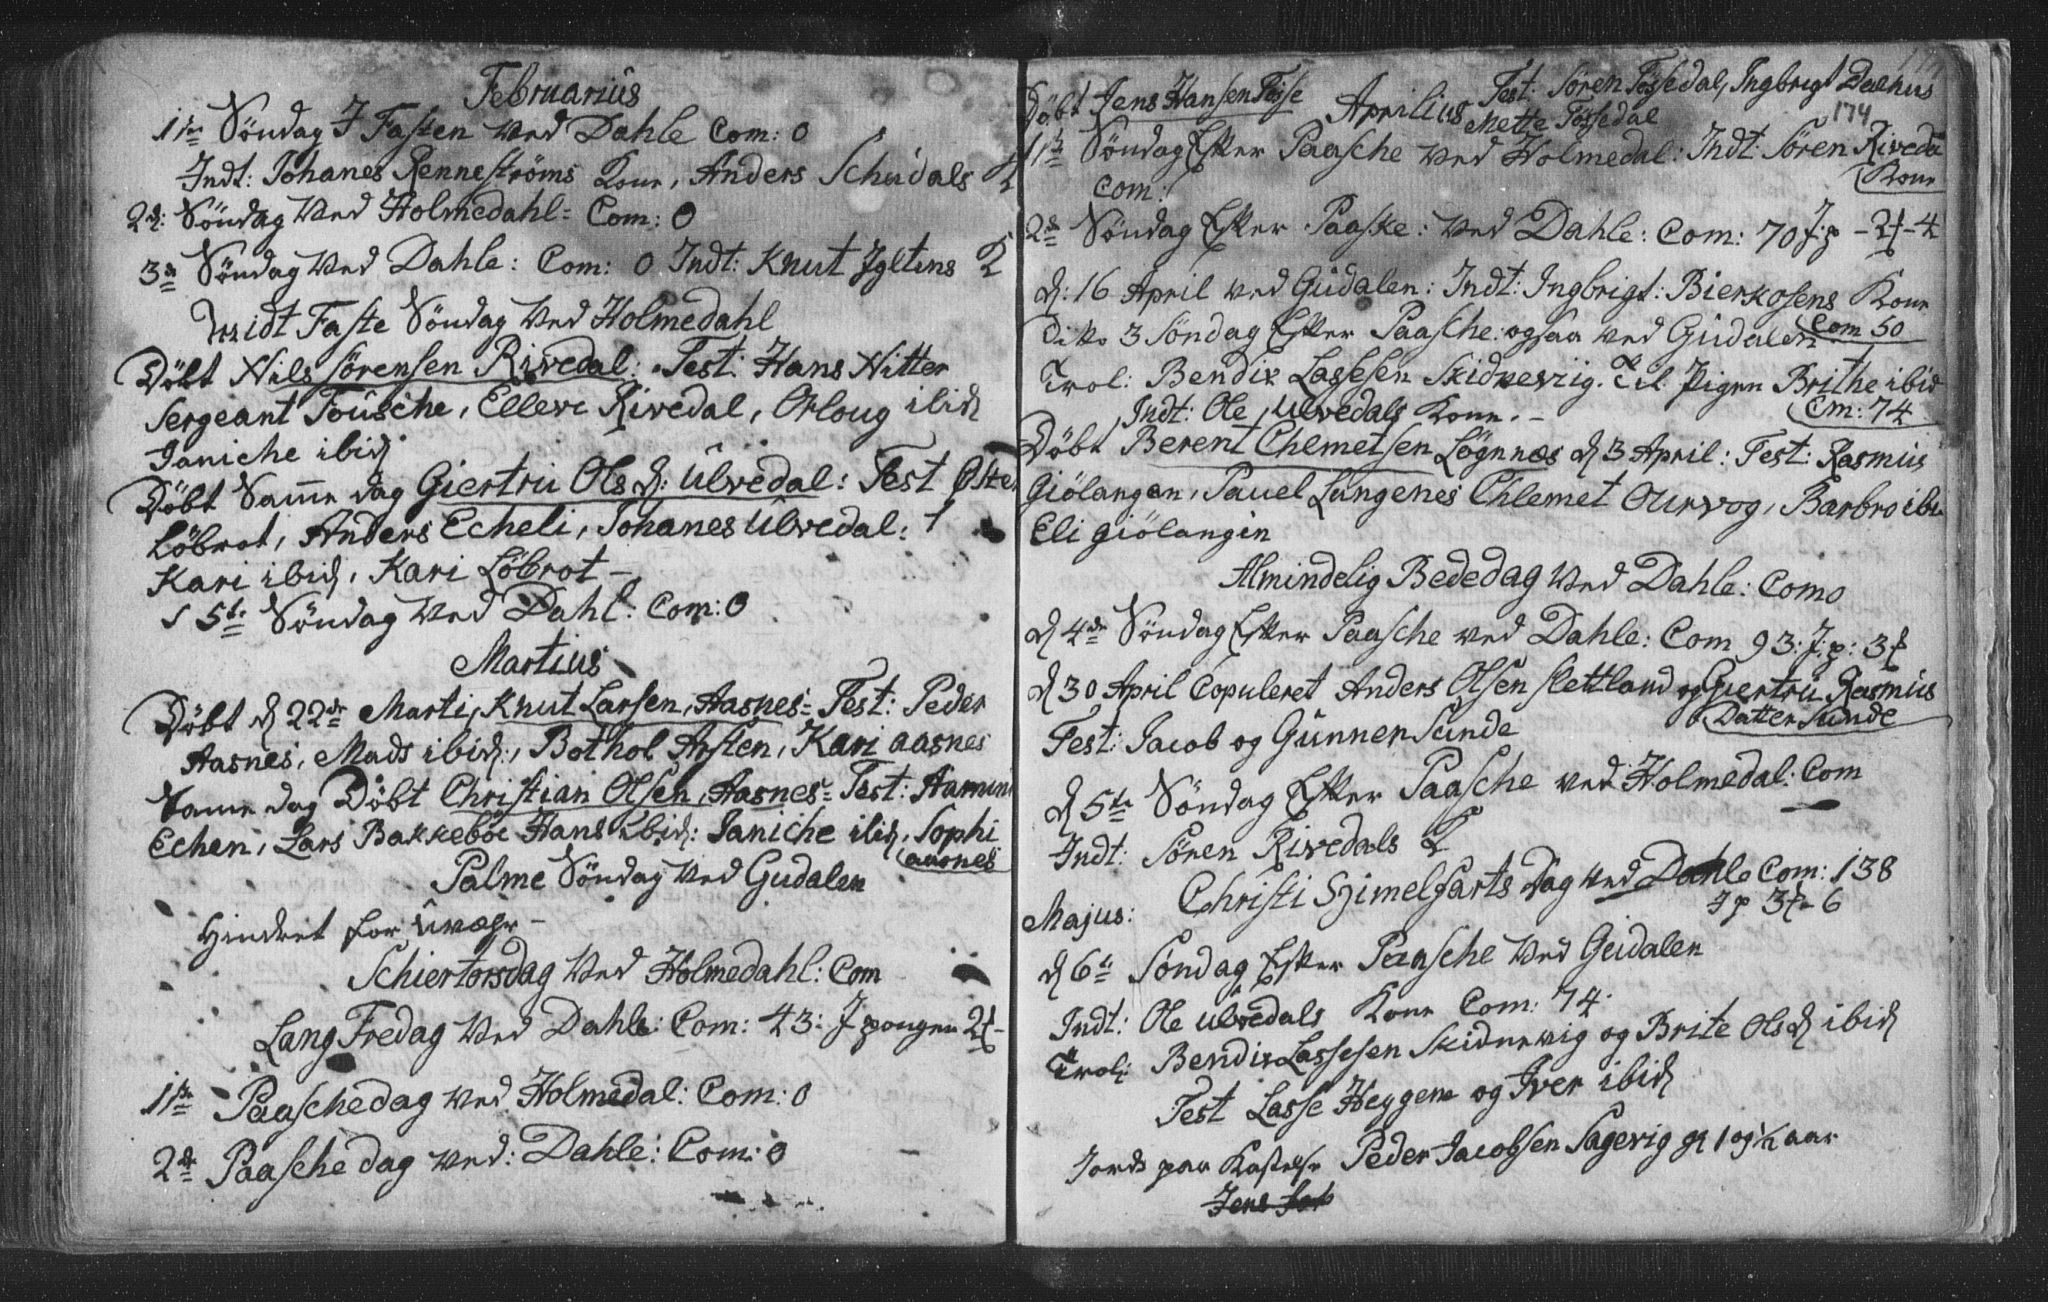 Februarius
1ste Søndag I Fasten ved Dahle Com: 0
Indt: Johanes Renneströms Kone, Anders Schidals K
2d: Søndag ved Holmedahl= Com: 0
3de Søndag ved Dahle: Com: 0 Indt: Knut Igltens K
Midt Faste Søndag ved Holmedahl
Døbt Nils Sørensen Rivedal: Test: Hans Nitter
Sergeant Tousche, Elleve Rivedal, Orloug ibid
Janiche ibid
Døbt Samme dag Giertru Ols d: Ulvedal: Test
Løbrot, Anders Echeli, Johanes Ulvedal:
Kari ibid, Kari Løbrot -
5te Søndag ved Dahl: Com: 0
Martius
Døbt d 22de Marti, Knut Larsen, Aasnes= Test: Peder
Aasnes, Mads ibid:, Bothol Arsten, Kari aasnes
Same dag Døbt Christian Olsen, Aasnes= Test:
Echen, Lars Bakkebøe Hans ibid: Janiche ibid, Sophi
aasnes
Palme Søndag ved Gudalen
Hindret for Uvæhr -
Schiertorsdag ved Holmedahl: Com
Lang Fredag ved Dahle: Com: 43: J pongen 2
1ste Paaschedag ved Holmedal: Com: 0
2de Paaschedag ved: Dahle: Com: 0
174
Døbt Jens Hansen Test: Søren Tøssedal, Ingbrigt Dalhus
Aprilius Mette Tøssedal
174
11te Søndag Efter Paasche ved Holmedal: Indt: Søren Riveda
Kone
Com:
2de Søndag Efter Paaske: ved Dahle: Com: 70 J: p - 2 - 4
d: 16 April ved Gudalen: Indt: Ingbrigt: Bierkosens Kone
Dito 3 Søndag Efter Paasche: ogsaa ved Gudalen Com 50
Trol: Bendix Lassesen Skidnevig. Til Pigen Brithe ibid
Indt: Ole Ulvedals Kone. - Com: 74
Døbt Berent Chemetsen Løgnnæs d 3 April: Test: Rasmus
Giölangen, Pauel Langenes Chlemet Ourvog, Barbro ibi
Eli Giölangin
Almindelig Bededag ved Dahle: Com 0
d 4de Søndag Efter Paasche ved Dahle: Com 93: J: p: 3
d 30 April Copuleret Anders Olsen Slettland og Giertru Rasmus
Datter Sunde
Test: Jacob og Gunner Sunde
d 5te Søndag Efter Paasche ved Holmedal: Com
Indt: Søren Rivedals K
Christi Himelfarts dag ved Dahle Com: 138
Majus: J p 3 - 6
d 6te Søndag Efter Paasche ved Gudalen
Indt: Ole Ulvedals Kone Com: 74
Trol: Bendix Lassesen Skidnevig og Brite Ols d ibid
Test Lasse Heggene og Iver ibid
Jords paa Kastelse Peder Jacobsen Sagevig gl 1 og 1/2 aar
Jens